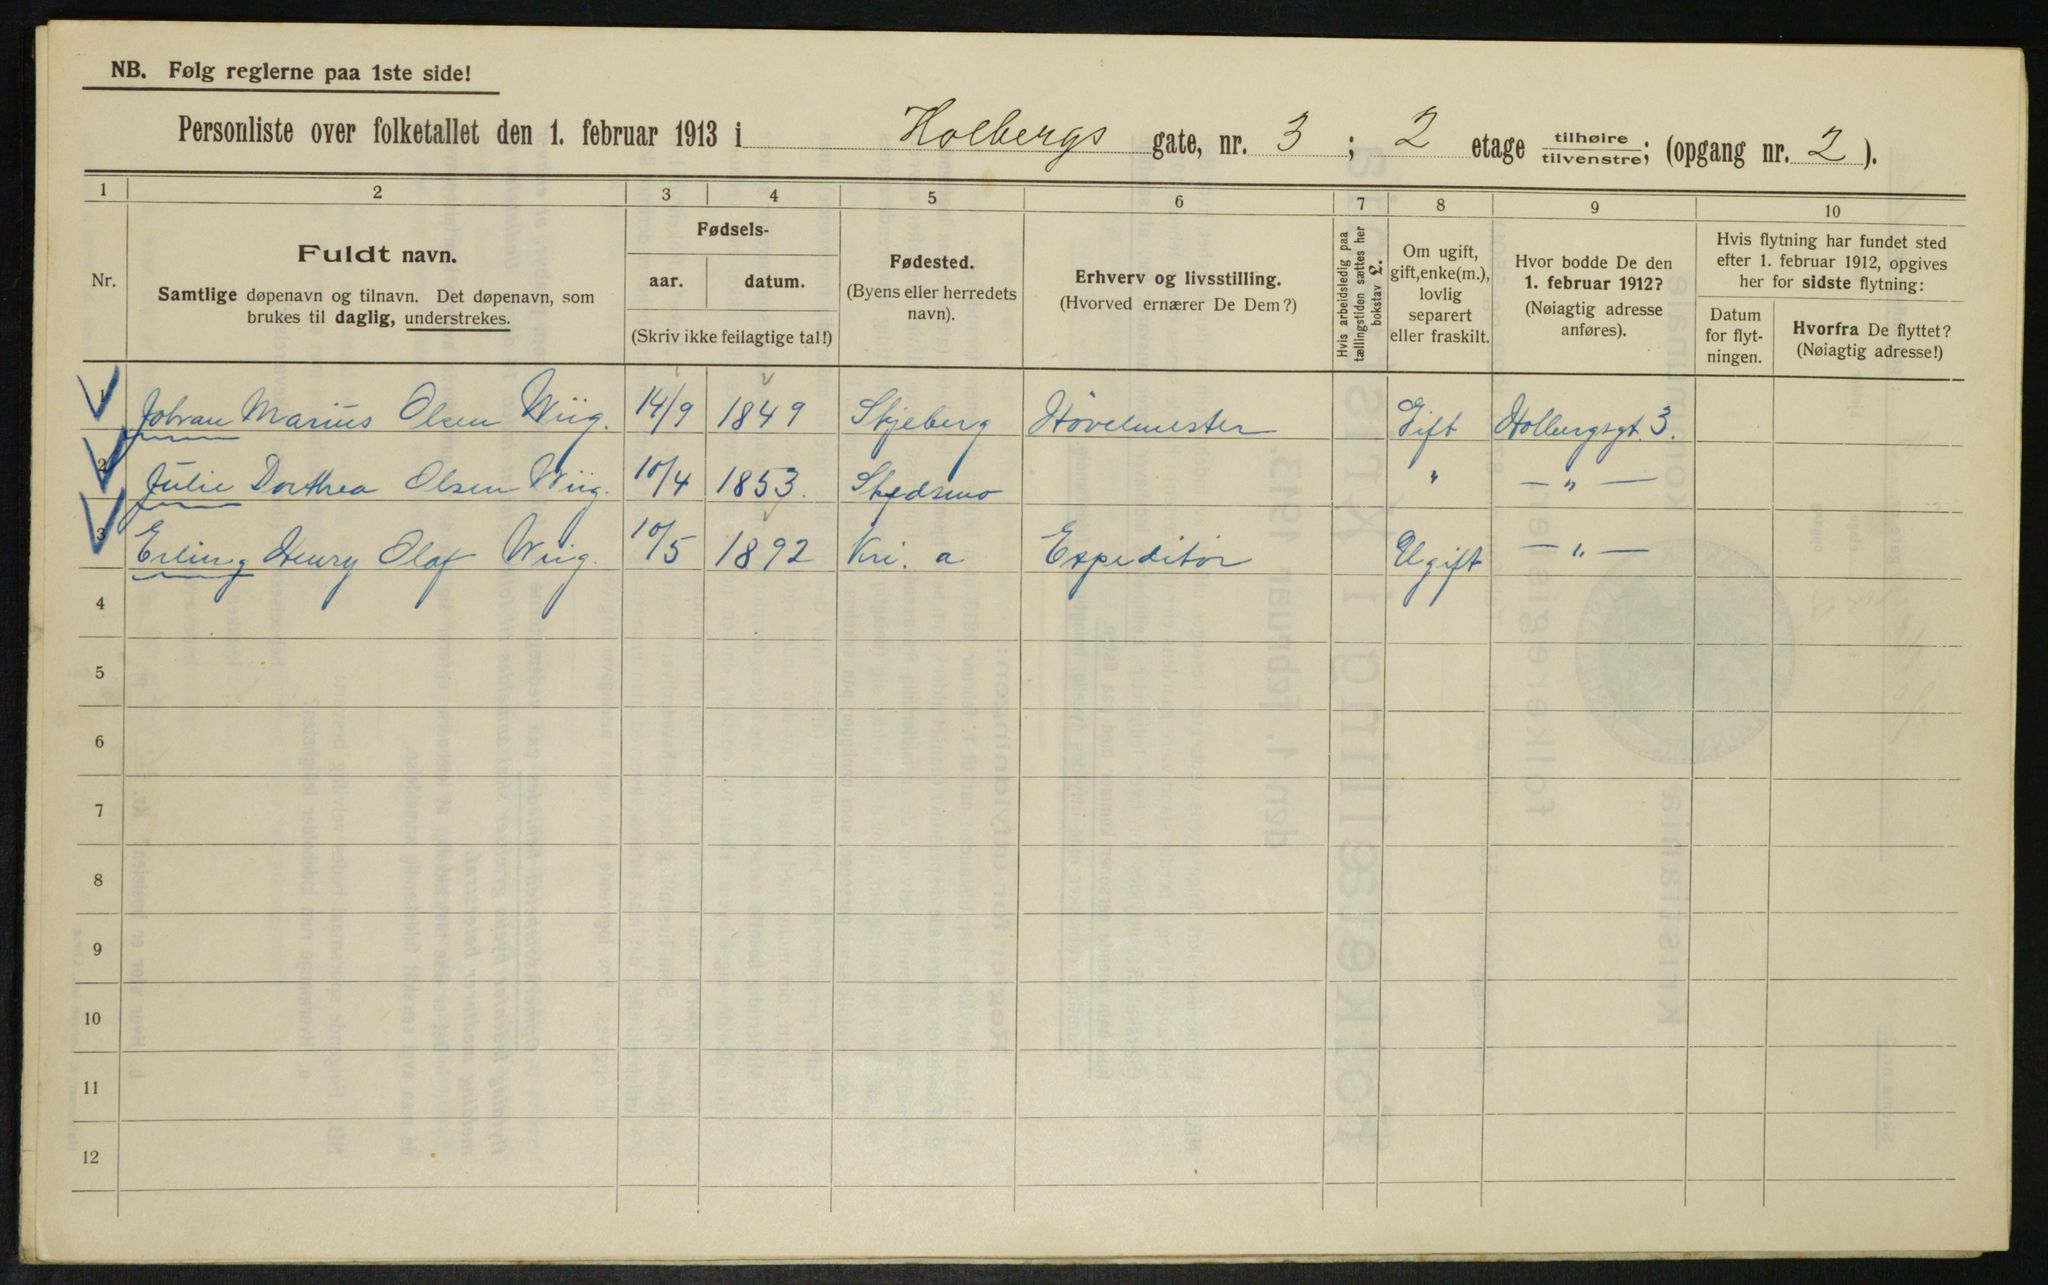 NB. Følg reglerne paa 1ste side!
Personliste over folketallet den 1. februar 1913 i Holbergs gate, nr. 3 ; 2 etage tilhøire / tilvenstre ; (opgang nr. 2 ).
1 2 3 4 5 6 7 8 9 10
Nr.
Fuldt navn.
Samtlige døpenavn og tilnavn. Det døpenavn, som
brukes til daglig, understrekes.
Fødsels-
aar. datum.
(Skriv ikke feilagtige tal!)
Fødested.
(Byens eller herredets
navn).
Erhverv og livsstilling.
(Hvorved ernærer De Dem?)
Hvis arbeidsledig paa
tællingstiden sættes her
bokstav L.
Om ugift,
gift, enke(m.),
lovlig
separert
eller fraskilt.
Hvor bodde De den
1. februar 1912?
(Nøiagtig adresse
anføres).
Hvis flytning har fundet sted
efter 1. februar 1912, opgives
her for sidste flytning:
Datum
for flyt-
ningen.
Hvorfra De flyttet?
(Nøiagtig adresse!)
1 Johan Marius Olsen Wiig. 14/9 1849 Skjeberg Høvelmester Gift Holbergsgt. 3.
2 Julie Dorthea Olsen Wiig. 10/4 1853. Skedsmo " — " —
3 Erling Henry Olaf Wiig. 10/5 1892 Kri. a Expeditør Ugift — " —
4
5
6
7
8
9
10
11
12